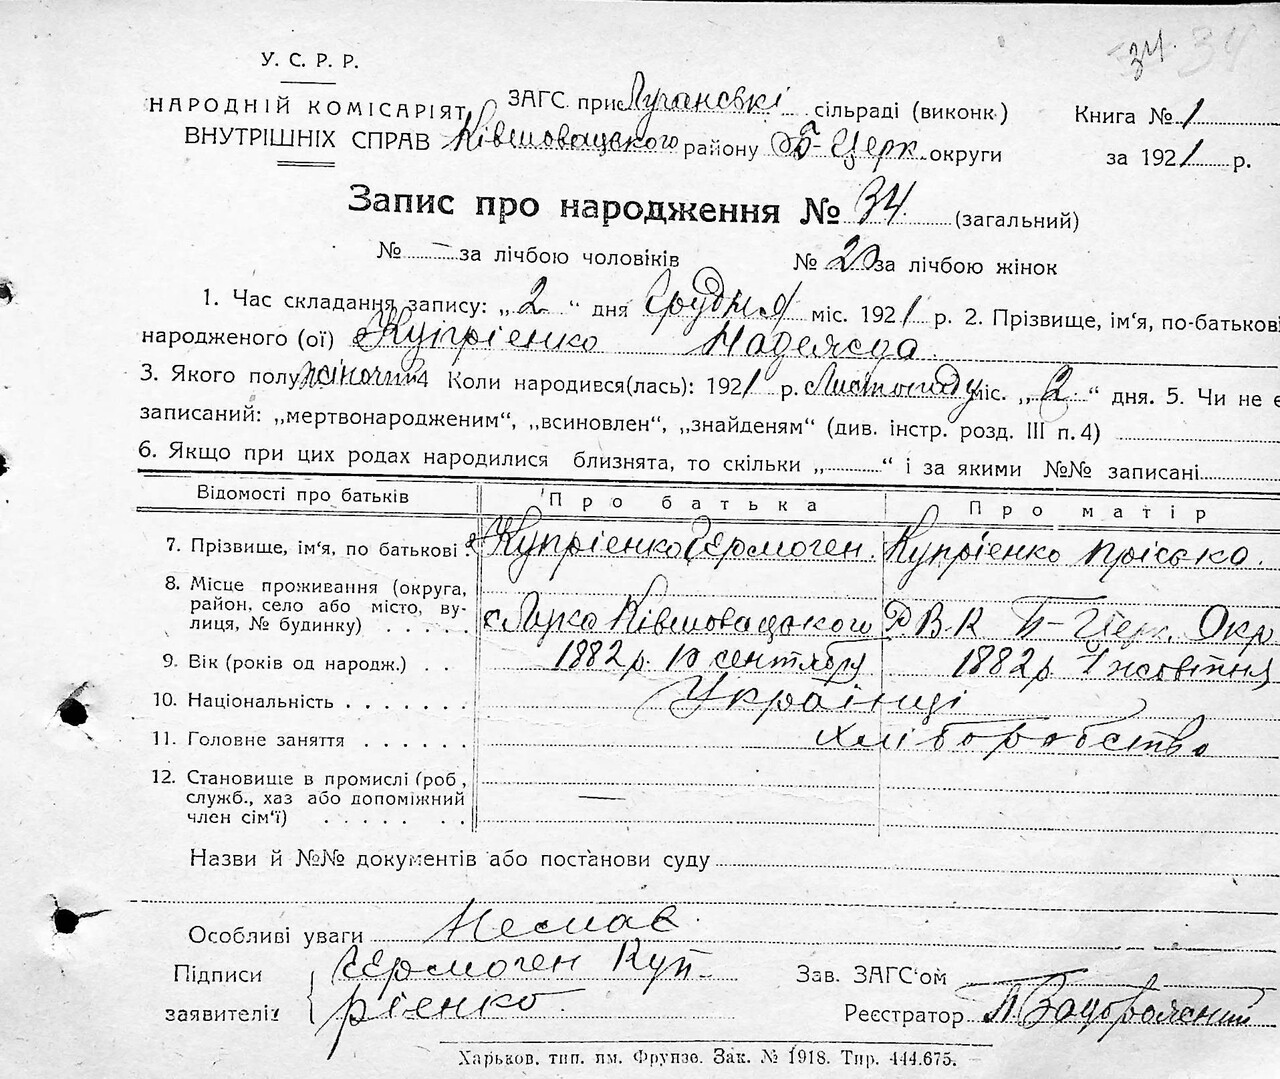 34. 34
У. С. Р. Р.
НАРОДНІЙ КОМІСАРІЯТ
ВНУТРІШНІХ СПРАВ
ЗАГС при Лучанські сільраді (виконк.)
Ківшовацского району Б-Церк. округи
Книга № 1
за 1921 р.
Запис про народження № 34. (загальний)
№ – за лічбою чоловіків № 20 за лічбою жінок
1. Час складання запису: „2“ дня Грудня міс. 1921 р. 2. Прізвище, ім‘я, по-батькові
народженого (ої) Купрієнко Надежда
3. Якого полу жіночий 4 Коли народився(лась): 1921 р. Листопаду міс. „2“ дня. 5. Чи не є
записаний: „мертвонародженим“, „всиновлен“, „знайденям“ (див. інстр. розд. III п. 4)
6. Якщо при цих родах народилися близнята, то скільки „ “ і за якими №№ записані
Відомості про батьків Про батька Про матір
7. Прізвище, ім‘я, по батькові Купрієнко Єрмоген. Купрієнко Пріська.
8. Місце проживання (округа,
район, село або місто, ву-
лиця, № будинку) . . . . . с Лука Ківшовацького Р.В.К Б-Цер. Окр
9. Вік (років од народж.) . . 1882 р. 10 сентябру 1882 р. 1 жовтня
10. Національність . . . . . . . Українці
11. Головне заняття . . . . . . Хліборобство
12. Становище в промислі (роб,
служб., хаз або допоміжний
член сім‘ї) . . . . . . . —
Назви й №№ документів або постанови суду
Особливі уваги Немає
Підписи
заявителів
Єрмоген Куп
рієнко
Зав. ЗАГС‘ом
Реєстратор П. Задорожний
Харьков, тип. им. Фрунзе. Зак. № 1918. Тир. 444.675.